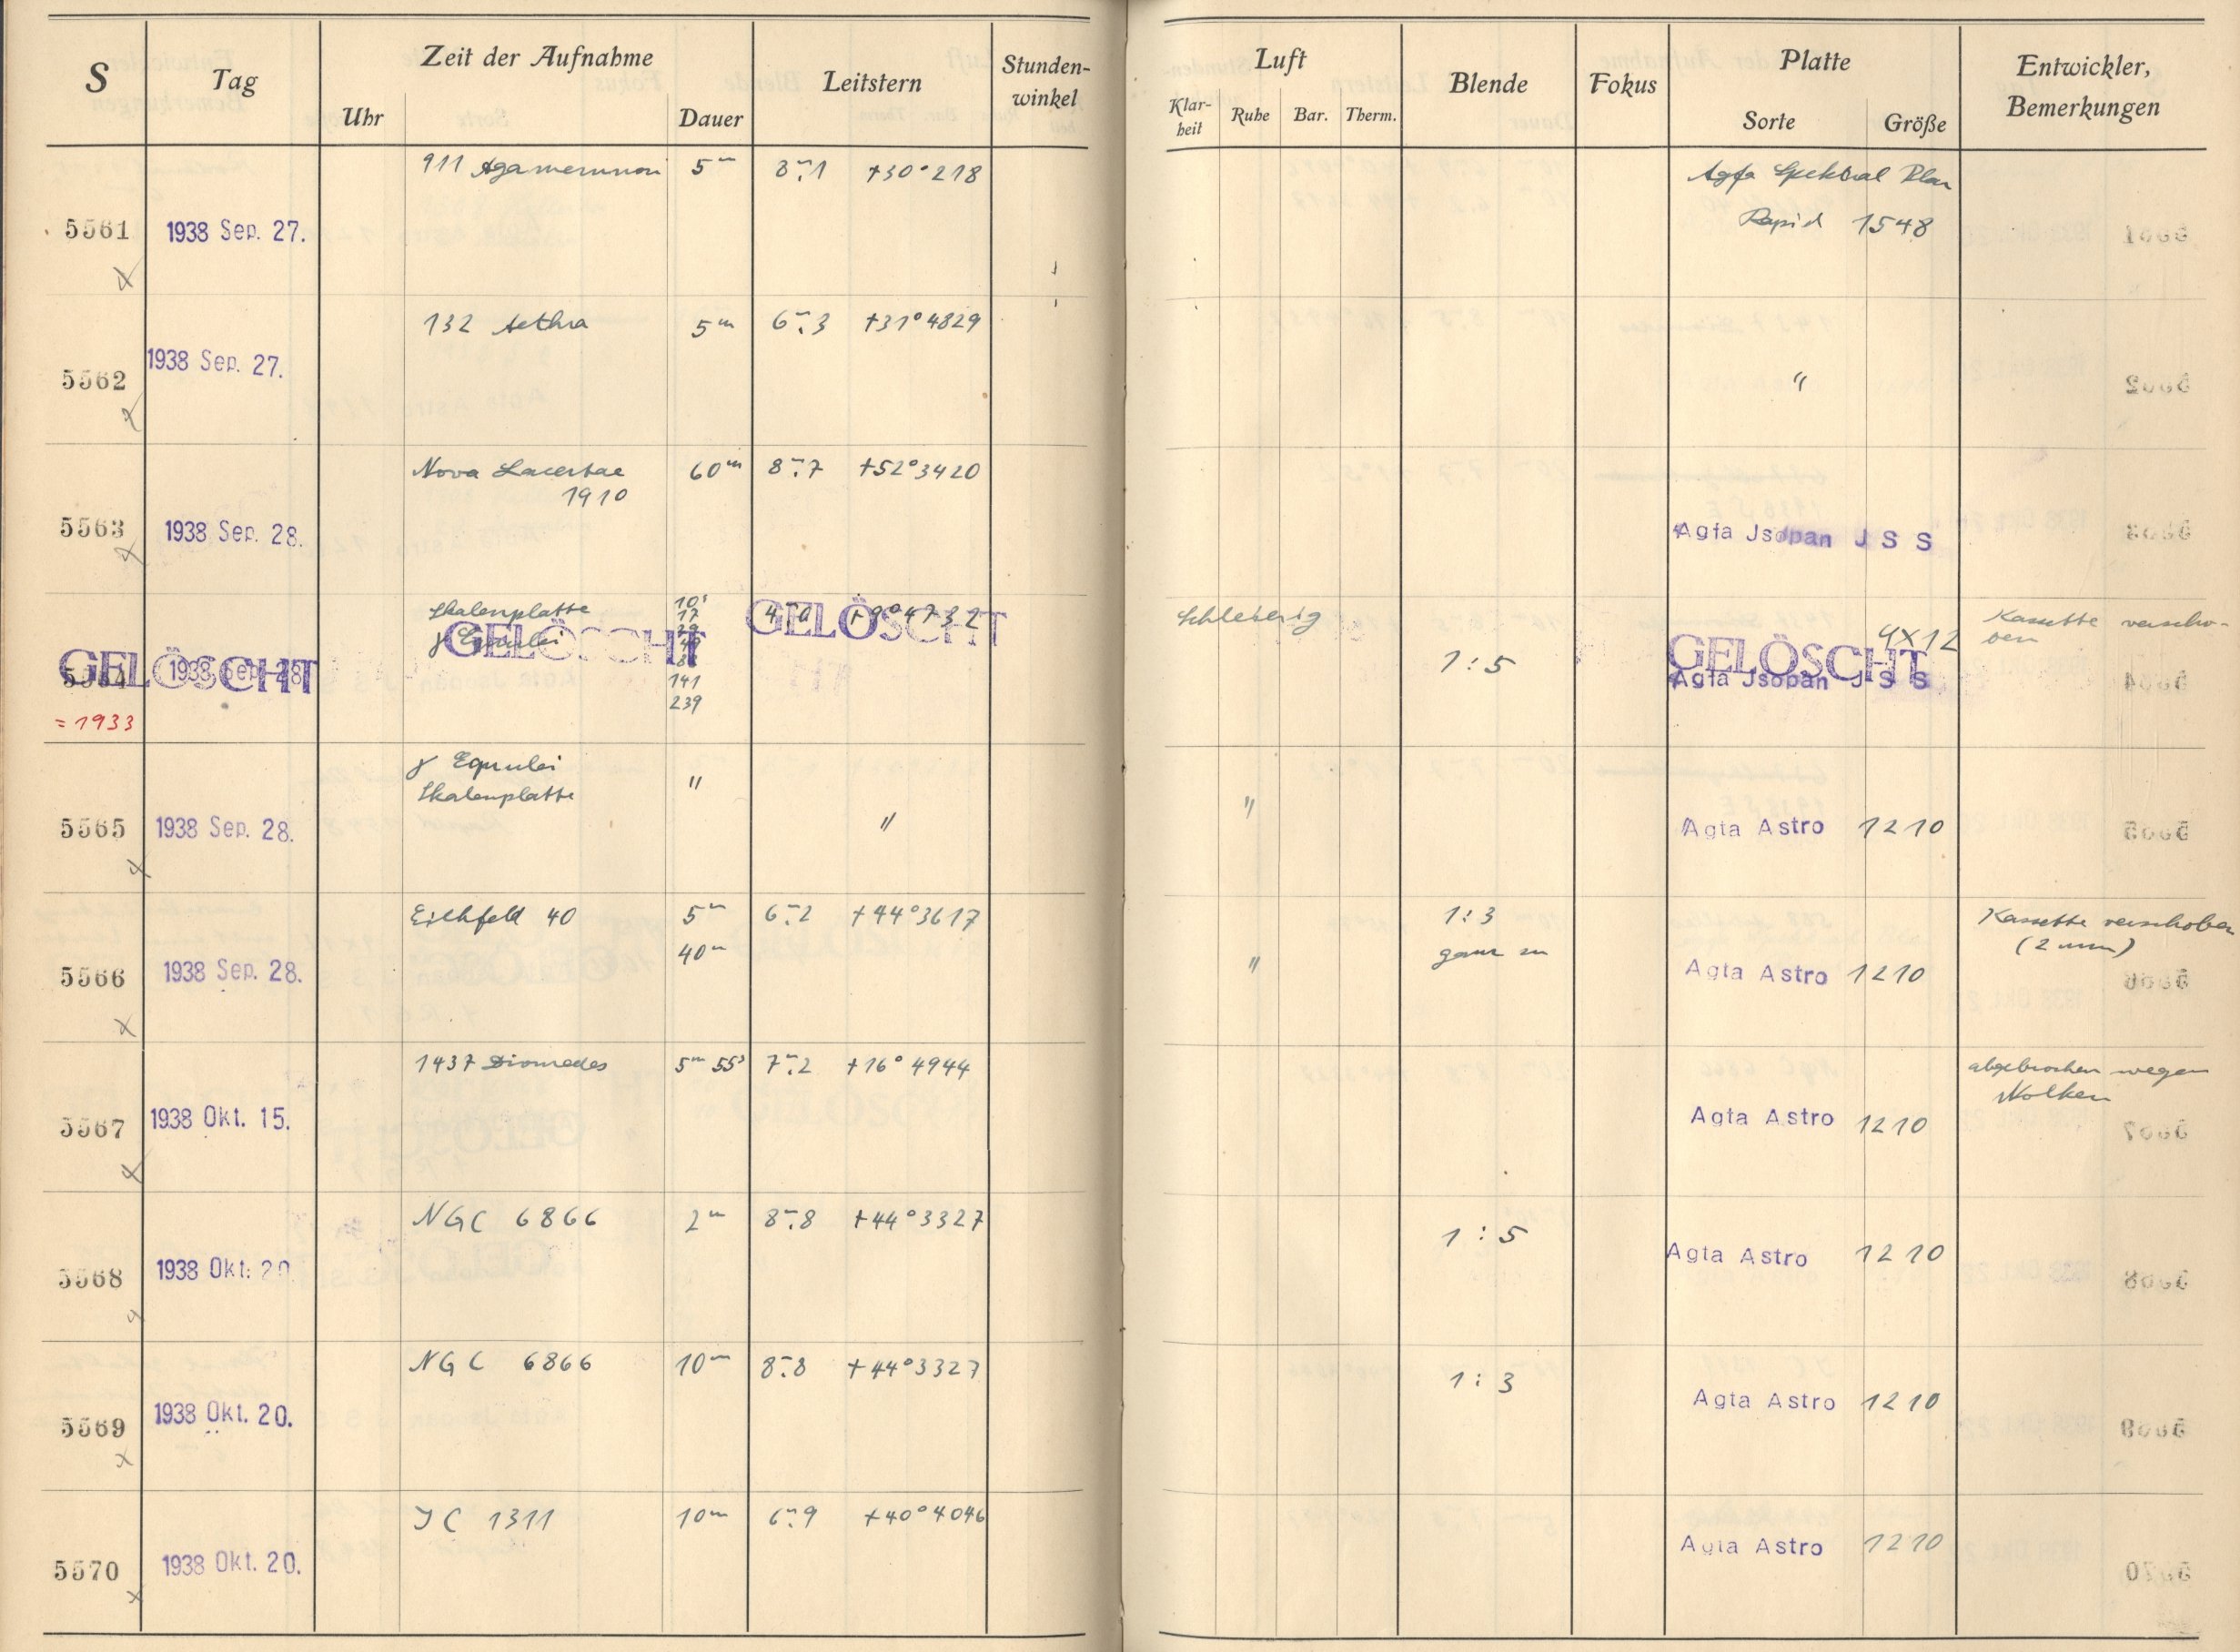 S Tag Zeit der Aufnahme Leitstern Stunden-winkel Luft Blende Fokus Platte Entwickler, Bemerkungen
Uhr Dauer Klar-heit Ruhe Bar. Therm. Sorte Größe
911 Agamemnon 5ᵐ 8ᵐ.1 +30°218 Agfa Spektral Plan
5561 1938 Sep. 27. Rapid 1548
132 Aethra 5ᵐ 6ᵐ.3 +31°4829
5562 1938 Sep. 27. "
Nova Lacertae 60ᵐ 8ᵐ.7 +52°3420
1910
5563 1938 Sep. 28. Agfa Jsopan J S S
Skalenplatte 10ˢ 4ᵐ.0 +9°4732 Schleierig Kassette verscho-
γ Equulei 17 9X12 ben
GELÖSCHT GELÖSCHT GELÖSCHT GELÖSCHT
5564 1938 Sep. 28. 1:5 Agfa Jsopan J S S
141
= 1933 239
γ Equulei "
Skalenplatte " "
5565 1938 Sep. 28. Agfa Astro 1210
Eichfeld 40 5ᵐ 6ᵐ.2 +44°3617 1:3 Kassette verschoben
40ᵐ " ganz zu (2 mm)
5566 1938 Sep. 28. Agfa Astro 1210
1437 Diomedes 5ᵐ 55ˢ 7ᵐ.2 +16°4944 abgebrochen wegen
Wolken
5567 1938 Okt. 15. Agfa Astro 1210
NGC 6866 2ᵐ 8ᵐ.8 +44°3327 1:5
5568 1938 Okt. 20. Agfa Astro 1210
NGC 6866 10ᵐ 8ᵐ.8 +44°3327 1:3
5569 1938 Okt. 20. Agfa Astro 1210
JC 1311 10ᵐ 6ᵐ.9 +40°4046
5570 1938 Okt. 20. Agfa Astro 1210